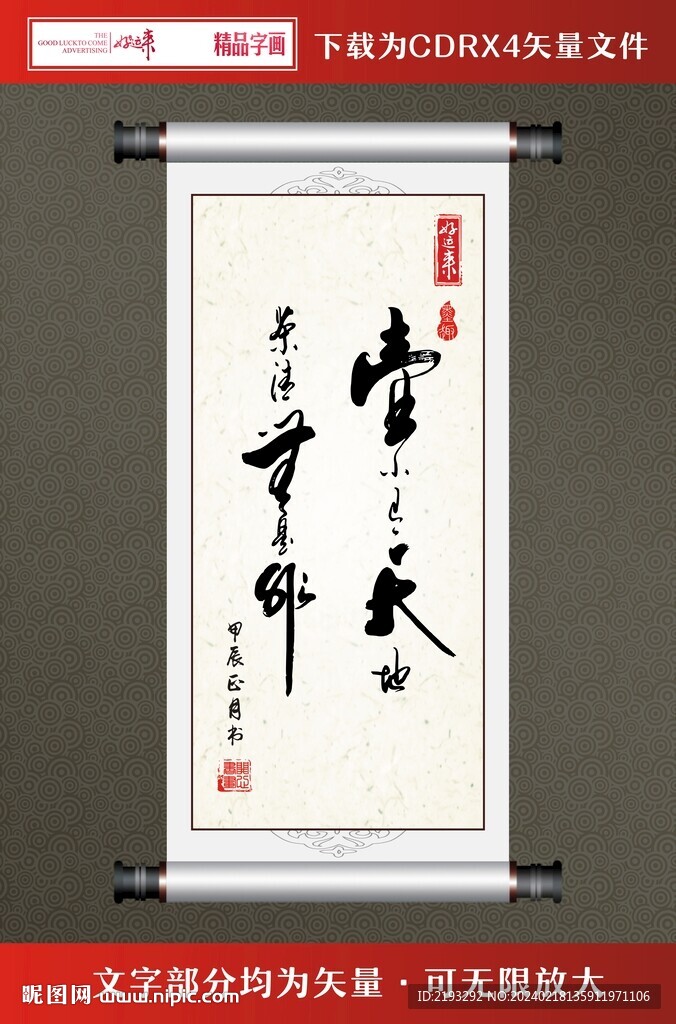 THE
GOOD LUCKTO COME
ADVERTISING
好运来
精品字画
下载为CDRX4矢量文件
好运来
墨趣
壺小天地
茶清無是非
甲辰正月书
文字部分均为矢量·可无限放大
昵图网 www.nipic.com
ID:2193292 NO:20240218135911971106